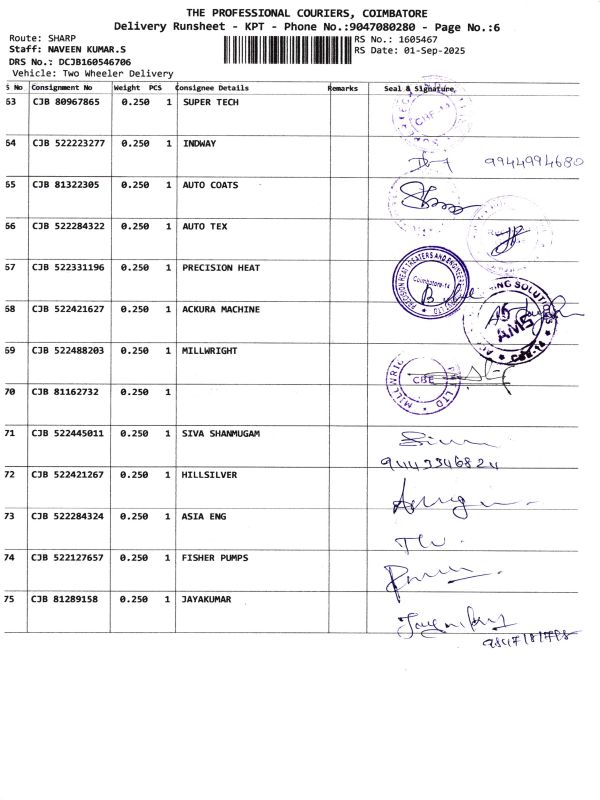 THE PROFESSIONAL COURIERS, COIMBATORE
Delivery Runsheet - KPT - Phone No.:9047080280 - Page No.:6
Route: SHARP
Staff: NAVEEN KUMAR.S
DRS No.: DCJB160546706
Vehicle: Two Wheeler Delivery
RS No.: 1605467
RS Date: 01-Sep-2025
S No Consignment No Weight PCS Consignee Details Remarks Seal & Signature,
63 CJB 80967865 0.250 1 SUPER TECH
CBE-14
64 CJB 522223277 0.250 1 INDWAY
9944994680
65 CJB 81322305 0.250 1 AUTO COATS
66 CJB 522284322 0.250 1 AUTO TEX
67 CJB 522331196 0.250 1 PRECISION HEAT
PRECISION HEAT TREATERS AND ENGINEERS
Coimbatore-14
68 CJB 522421627 0.250 1 ACKURA MACHINE
AMS
CBE-14
69 CJB 522488203 0.250 1 MILLWRIGHT
CBE
70 CJB 81162732 0.250 1
71 CJB 522445011 0.250 1 SIVA SHANMUGAM
9443346824
72 CJB 522421267 0.250 1 HILLSILVER
73 CJB 522284324 0.250 1 ASIA ENG
74 CJB 522127657 0.250 1 FISHER PUMPS
75 CJB 81289158 0.250 1 JAYAKUMAR